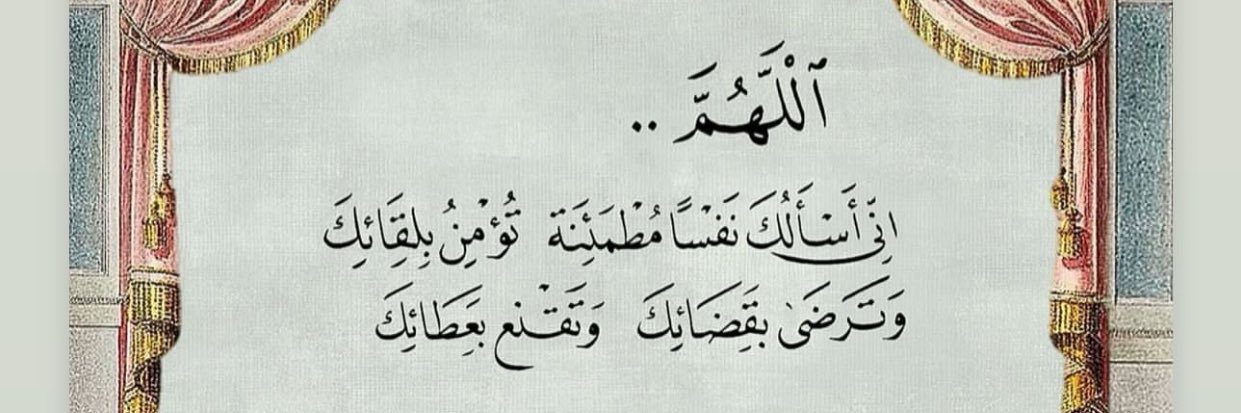 ٱللَّهُمَّ ..
اِنّي أَسْأَلُكَ نَفْسًا مُطْمَئِنَة تُؤمِنُ بِلِقَائِكَ
وَتَرَضَىٰ بِقَضَائِكَ وَتَقْنع بِعَطَائِكَ